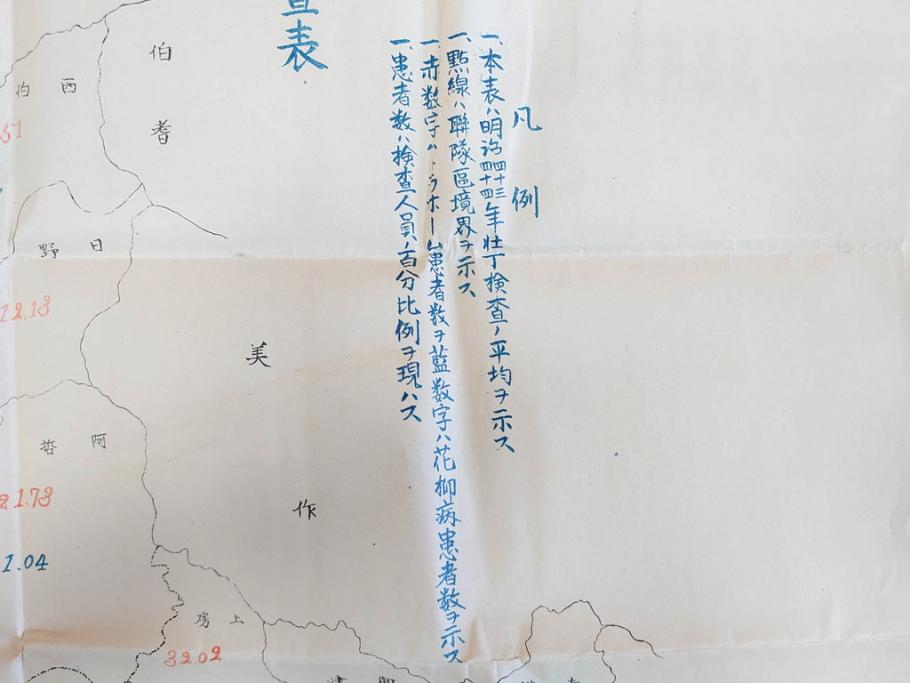 凡例
一、本表ハ明治四十三四十四年壮丁検査ノ平均ヲ示ス
一、點線ハ聯隊區境界ヲ示ス
一、赤数字ハトラホーム患者数ヲ藍数字ハ花柳病患者数ヲ示ス
一、患者数ハ検査人員ノ百分比例ヲ現ハス
査表
伯耆
西伯
51
日野
12.13
美作
阿哲
21.73
1.04
上房
32.02